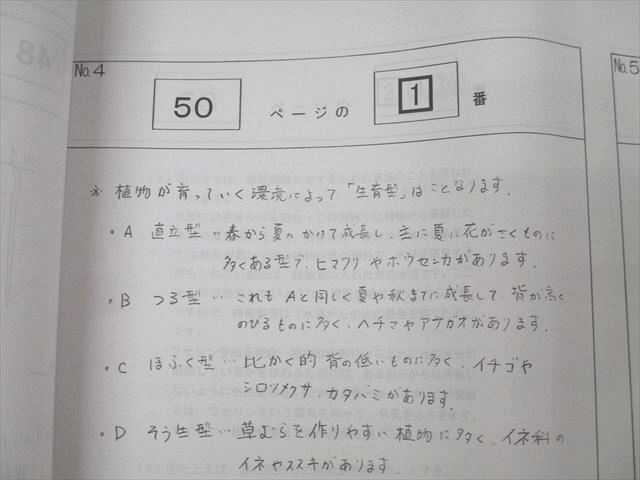 48
No.4
No.5
50 ページの 1 番
※ 植物が育っていく環境によって「生育型」はことなります。
・A 直立型… 春から夏にかけて成長し、主に夏に花がさくものに
多くある型で、ヒマワリやホウセンカがあります。
・B つる型… これもAと同じく夏や秋までに成長して、背が高く
のびるものに多く、ヘチマやアサガオがあります。
・C ほふく型… 比かく的背の低いものに多く、イチゴや
シロツメクサ、カタバミがあります。
・D そう生型… 草むらを作りやすい植物に多く、イネ科の
イネやススキがあります。